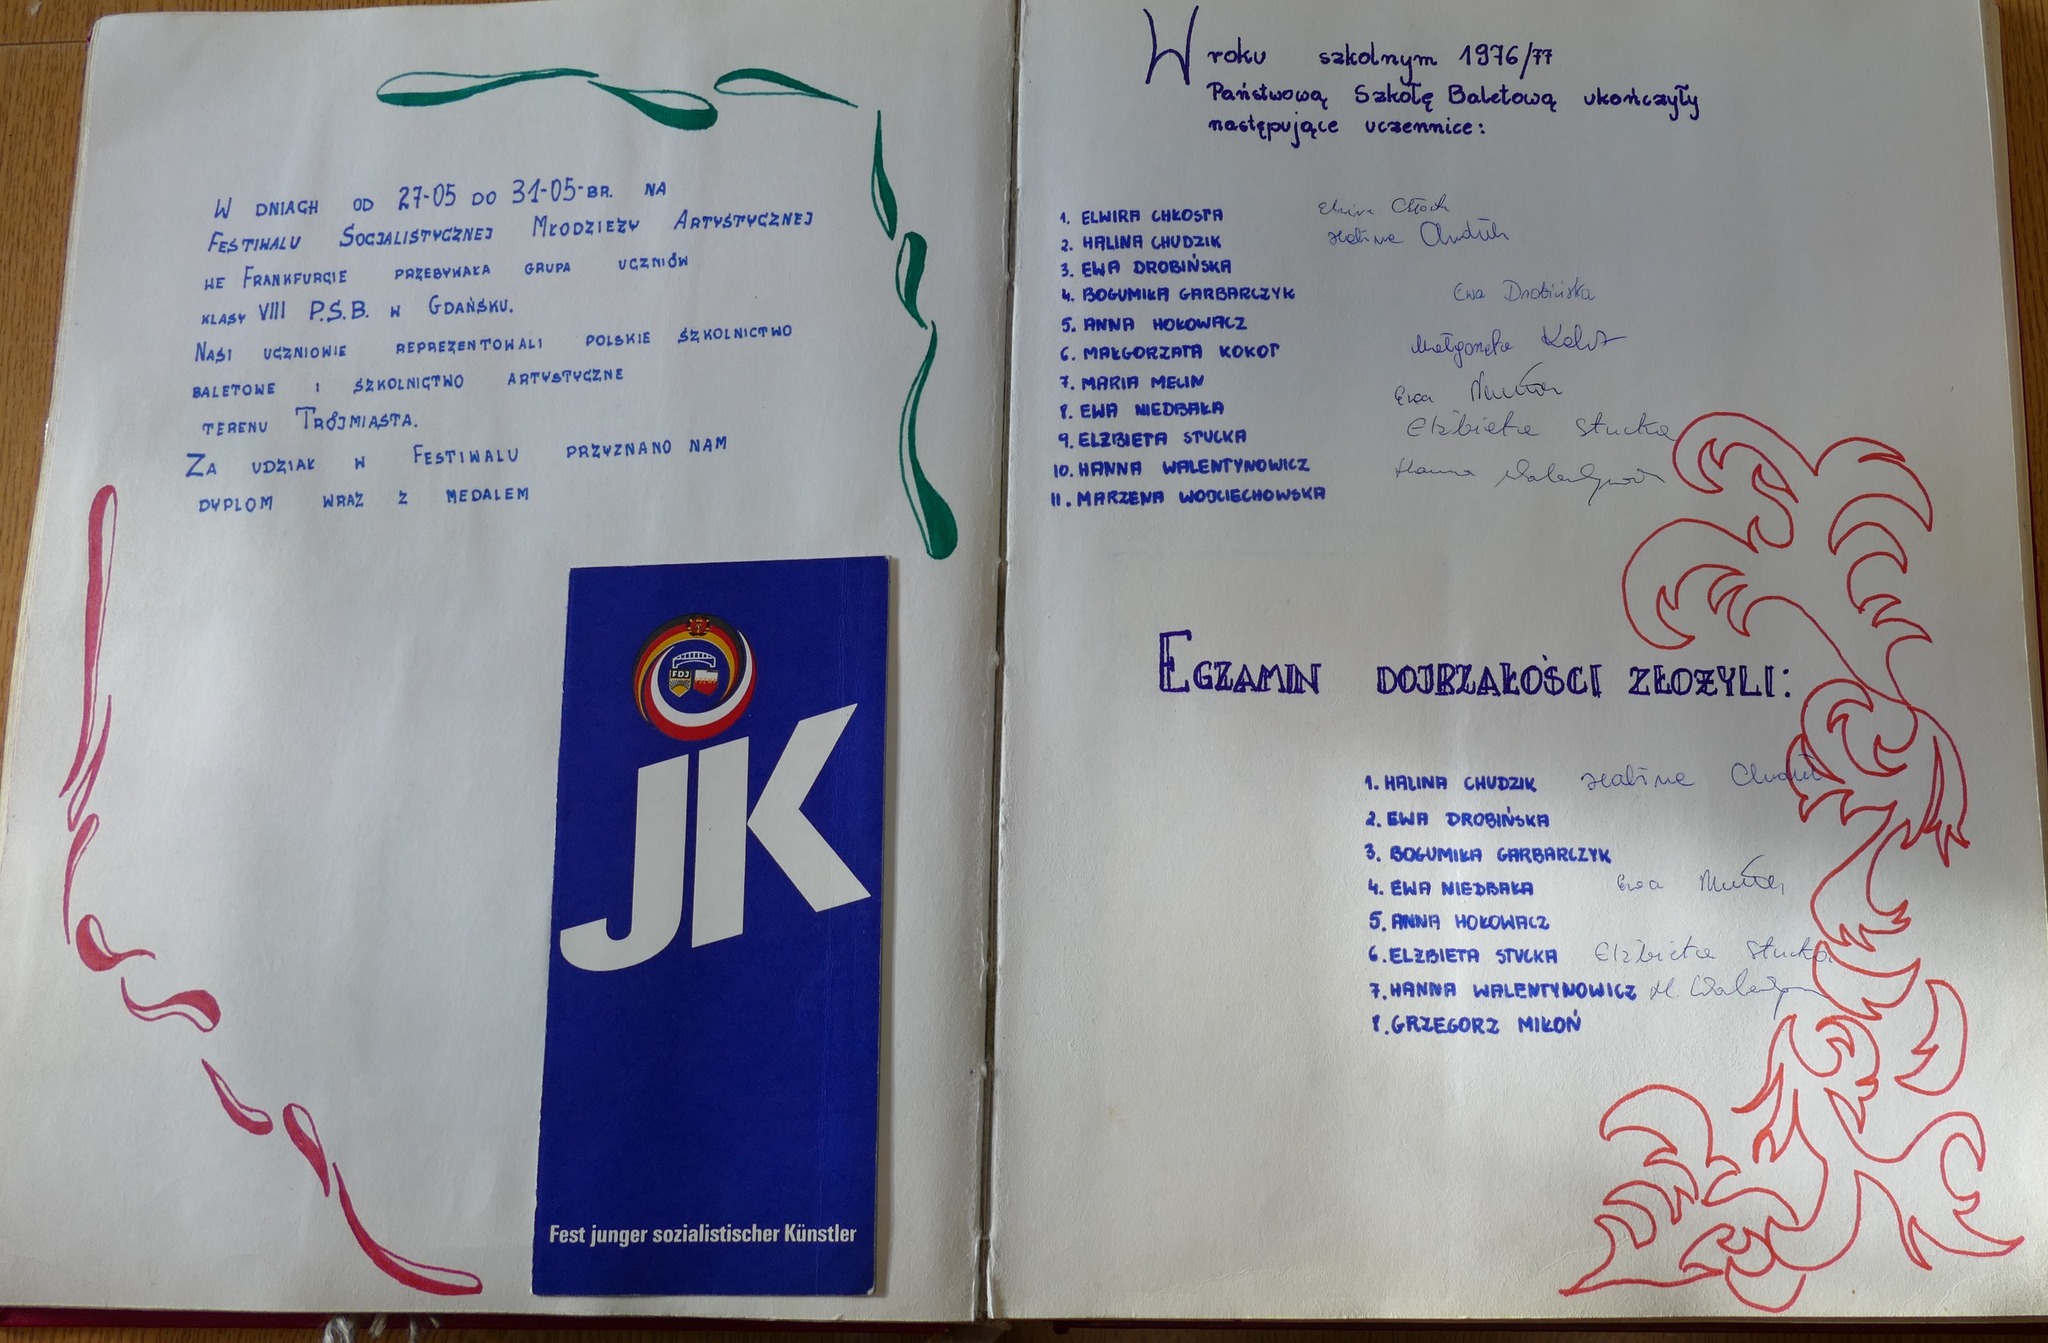 W DNIACH OD 27-05 DO 31-05-BR. NA
FESTIWALU SOCJALISTYCZNEJ MŁODZIEŻY ARTYSTYCZNEJ
WE FRANKFURCIE PRZEBYWAŁA GRUPA UCZNIÓW
KLASY VIII P.S.B. W GDAŃSKU.
NASI UCZNIOWIE REPREZENTOWALI POLSKIE SZKOLNICTWO
BALETOWE I SZKOLNICTWO ARTYSTYCZNE
TERENU TRÓJMIASTA.
ZA UDZIAŁ W FESTIWALU PRZYZNANO NAM
DYPLOM WRAZ Z MEDALEM
FDJ
JK
Fest junger sozialistischer Künstler
W roku szkolnym 1976/77
Państwową Szkołę Baletową ukończyły
następujące uczennice:
1. ELWIRA CHŁOSTA
2. HALINA CHUDZIK Halina Chudzik
3. EWA DROBIŃSKA
4. BOGUMIŁA GARBARCZYK Ewa Drobińska
5. ANNA HOŁOWACZ
6. MAŁGORZATA KOKOT Małgorzata Kokot
7. MARIA MELIN
8. EWA NIEDBAŁA Ewa
9. ELŻBIETA STUCKA Elżbieta Stucka
10. HANNA WALENTYNOWICZ Hanna Walentynowicz
11. MARZENA WOJCIECHOWSKA
EGZAMIN DOJRZAŁOŚCI ZŁOŻYLI:
1. HALINA CHUDZIK Halina Chudzik
2. EWA DROBIŃSKA
3. BOGUMIŁA GARBARCZYK
4. EWA NIEDBAŁA Ewa
5. ANNA HOŁOWACZ
6. ELŻBIETA STUCKA Elżbieta Stucka
7. HANNA WALENTYNOWICZ H.
8. GRZEGORZ MIŁOŃ